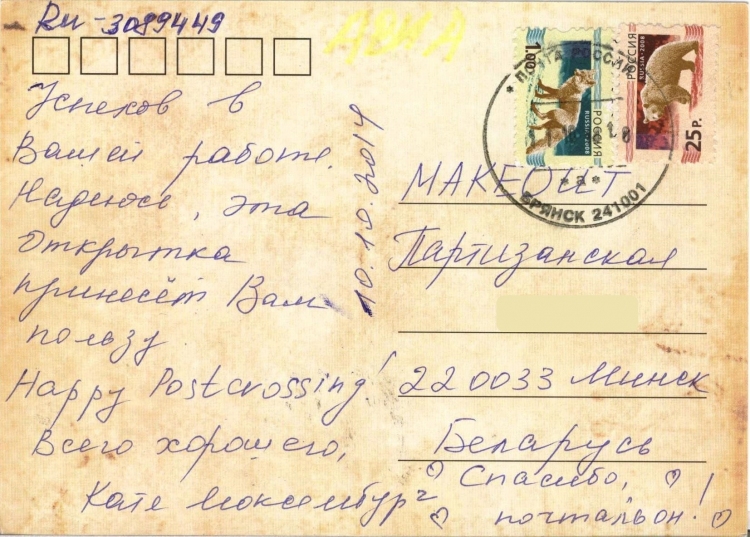 RU-3089449
АВИА
Успехов в
Вашей работе.
Надеюсь, эта
открытка
принесёт Вам
пользу.
Happy Postcrossing!
Всего хорошего,
Кате Локсембург
10.10.2014
1.00
РОССИЯ
RUSSIA•2008
РОССИЯ
RUSSIA•2008
25 Р.
* ПОЧТА РОССИИ
* а *
БРЯНСК 241001
МАКЕОUТ
Партизанская
220033 Минск
Беларусь
Спасибо,
почтальон!